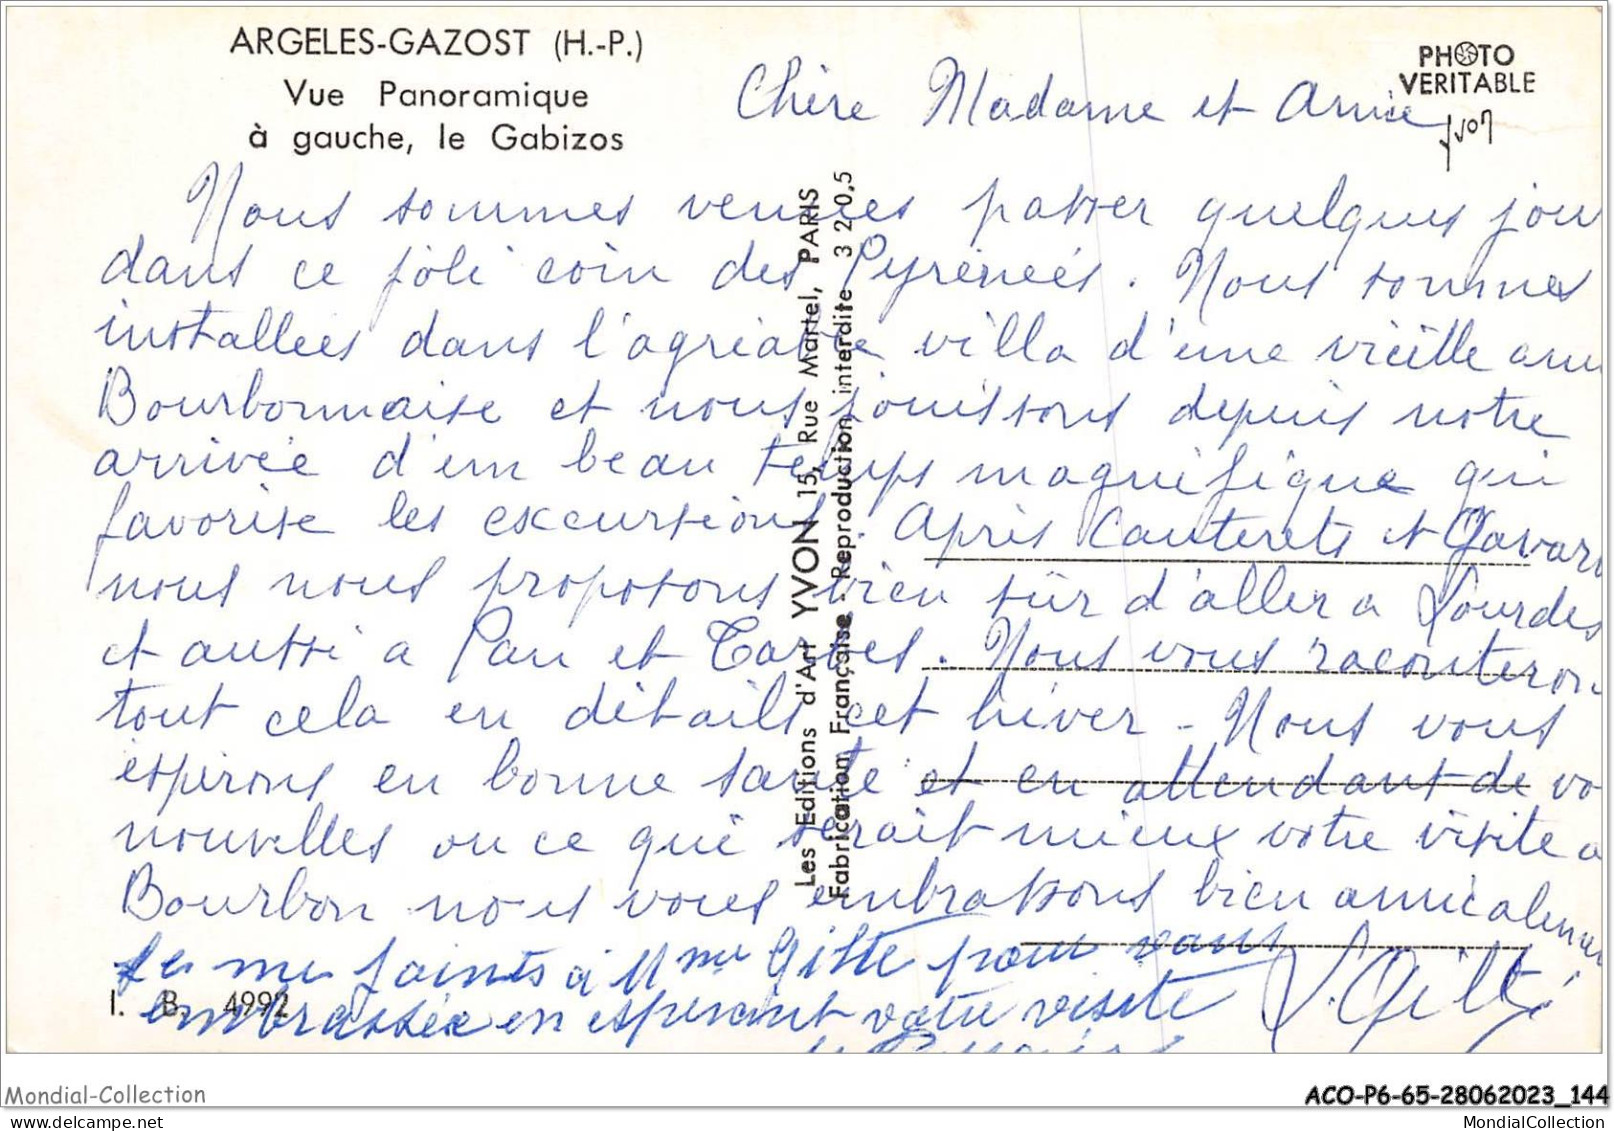 ARGELES-GAZOST (H.-P.)
Vue Panoramique
à gauche, le Gabizos
PHOTO
VERITABLE
yvon
Chère Madame et Amie
Nous sommes venues passer quelques jou
dans ce joli coin des Pyrénées. Nous sommes
installées dans l'agréable villa d'une vieille ami
Bourbonnaise et nous jouissons depuis notre
arrivée d'un beau temps magnifique qui
favorise les excursions. Après Cauterets et Gavarn
nous nous proposons bien sûr d'aller a Lourdes
et aussi a Pau et Tarbes. Nous vous raconteron
tout cela en détails cet hiver - Nous vous
espérons en bonne santé et en attendant de vo
nouvelles ou ce qui serait mieux votre visite a
Bourbon nous vous embrassons bien amicalemen
Je me joints à Mme Gilte pour vous
embrassée en espérant votre visite
Les Editions d'Art YVON 15, Rue Martel, PARIS
Fabrication Française - Reproduction interdite 3 2 0,5
I. B. 4992
Mondial-Collection
ACO-P6-65-28062023_144
MondialCollection